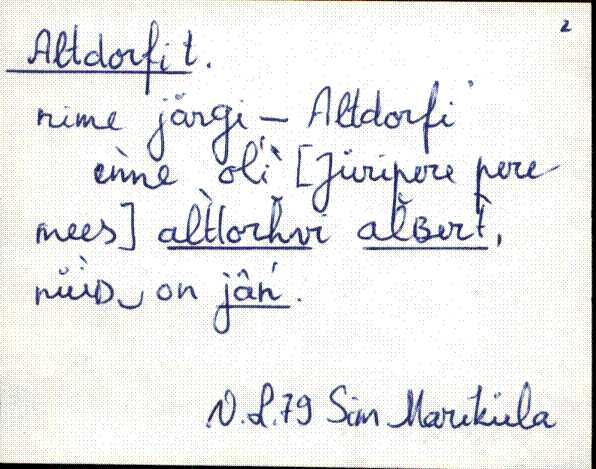 2
Altdorfi t.
nime järgi – Altdorfi
enne oli [Jüripere pere-
mees] altlorhvi alʙert,
nüüᴅ on jân.
V.L.79 Sim Marikiula